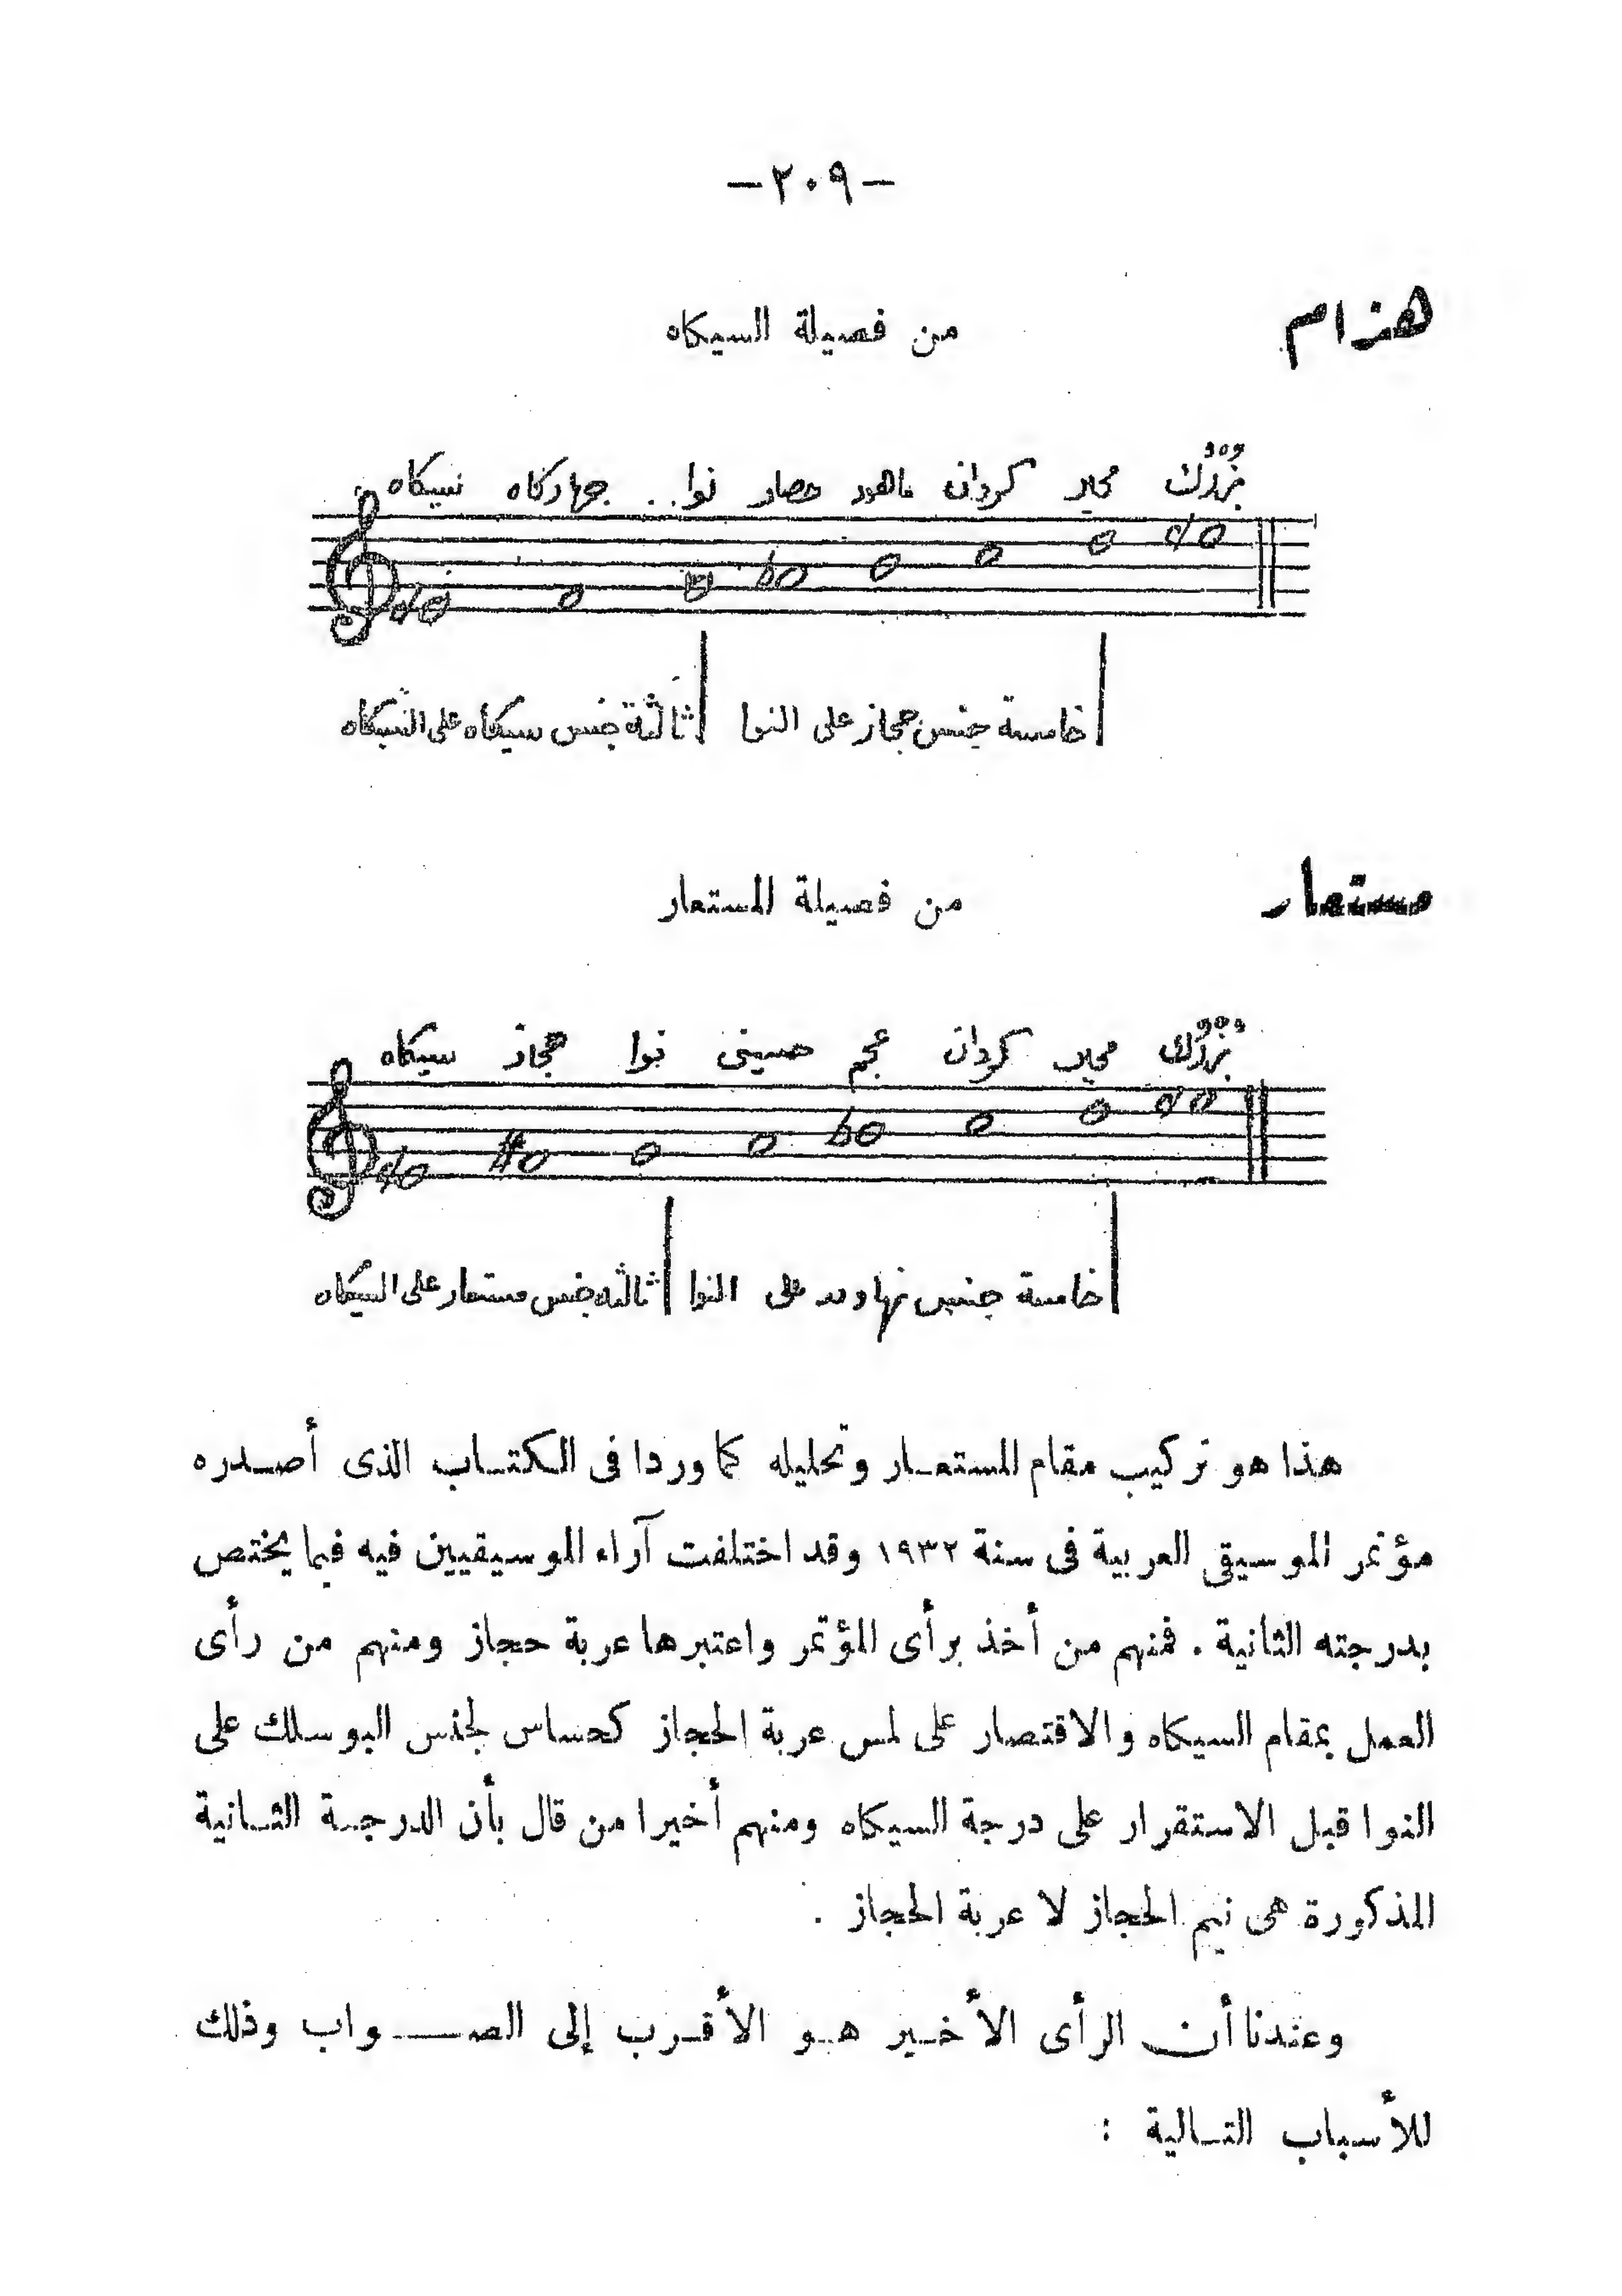 -٢٠٩-
هزام
من فصيلة السيكاه
سيكاه جهاركاه نوا حصار ماهور كردان محير بُزُرْك
ثالثة جنس سيكاه على السيكاه خامسة جنس حجاز على النوا
مستعار
من فصيلة المستعار
سيكاه حجاز نوا حسينى عجم كردان محير بُزُرْك
ثالثه جنس مستعار على السيكاه خامسة جنس نهاوند على النوا
هذا هو تركيب مقام المستعار وتحليله كما وردا فى الكتاب الذى أصدره
مؤتمر الموسيقى العربية فى سنة ١٩٣٢ وقد اختلفت آراء الموسيقيين فيه فيما يختص
بدرجته الثانية . فمنهم من أخذ برأى المؤتمر واعتبرها عربة حجاز ومنهم من رأى
العمل بمقام السيكاه والاقتصار على لمس عربة الحجاز كحساس لجنس البوسلك على
النوا قبل الاستقرار على درجة السيكاه ومنهم أخيرا من قال بأن الدرجة الثانية
المذكورة هى نيم الحجاز لا عربة الحجاز .
وعندنا أن الرأى الأخير هو الأقرب إلى الصواب وذلك
للأسباب التالية :